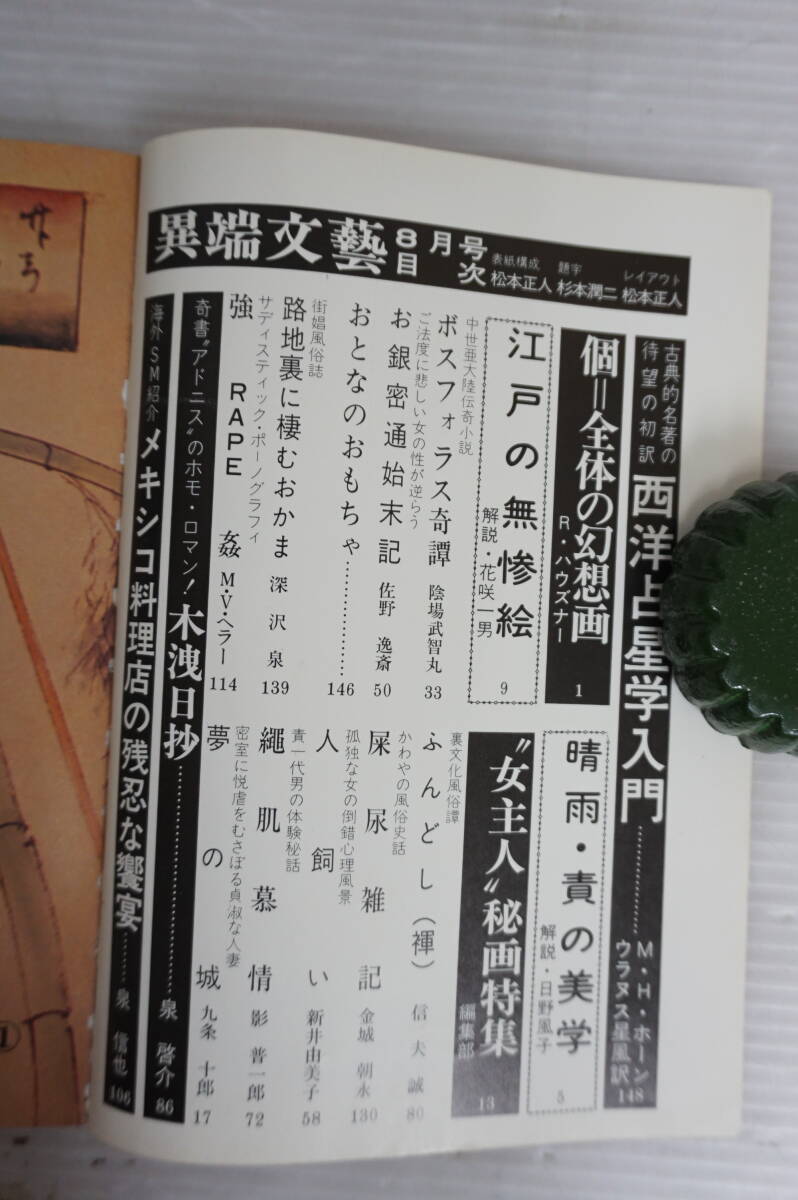 異端文藝 8月号 目次
表紙構成 松本正人
題字 杉本潤二
レイアウト 松本正人
古典的名著の待望の初訳
西洋占星学入門……………… M・H・ホーン ウラヌス星風訳 148
個=全体の幻想画 R・ハウズナー 1
晴雨・責の美学 解説・日野風子 5
江戸の無惨絵 解説・花咲一男 9
"女主人"秘画特集 編集部 13
中世亜大陸伝奇小説
ボスフォラス奇譚 陰場武智丸 33
ご法度に悲しい女の性が逆らう
お銀密通始末記 佐野逸斎 50
おとなのおもちゃ……………… 146
街娼風俗誌
路地裏に棲むおかま 深沢泉 139
サディスティック・ポーノグラフィ
強 RAPE 姦 M・V・ヘラー 114
裏文化風俗譚
ふんどし(褌) 信夫誠 80
かわやの風俗史話
屎尿雑記 金城朝永 130
孤独な女の倒錯心理風景
人飼い 新井由美子 58
責一代男の体験秘話
繩肌慕情 影普一郎 72
密室に悦虐をむさぼる貞淑な人妻
夢の城 九条十郎 17
奇書"アドニス"のホモ・ロマン!
木洩日抄……………… 泉啓介 86
海外SM紹介
メキシコ料理店の残忍な饗宴……… 泉信也 106